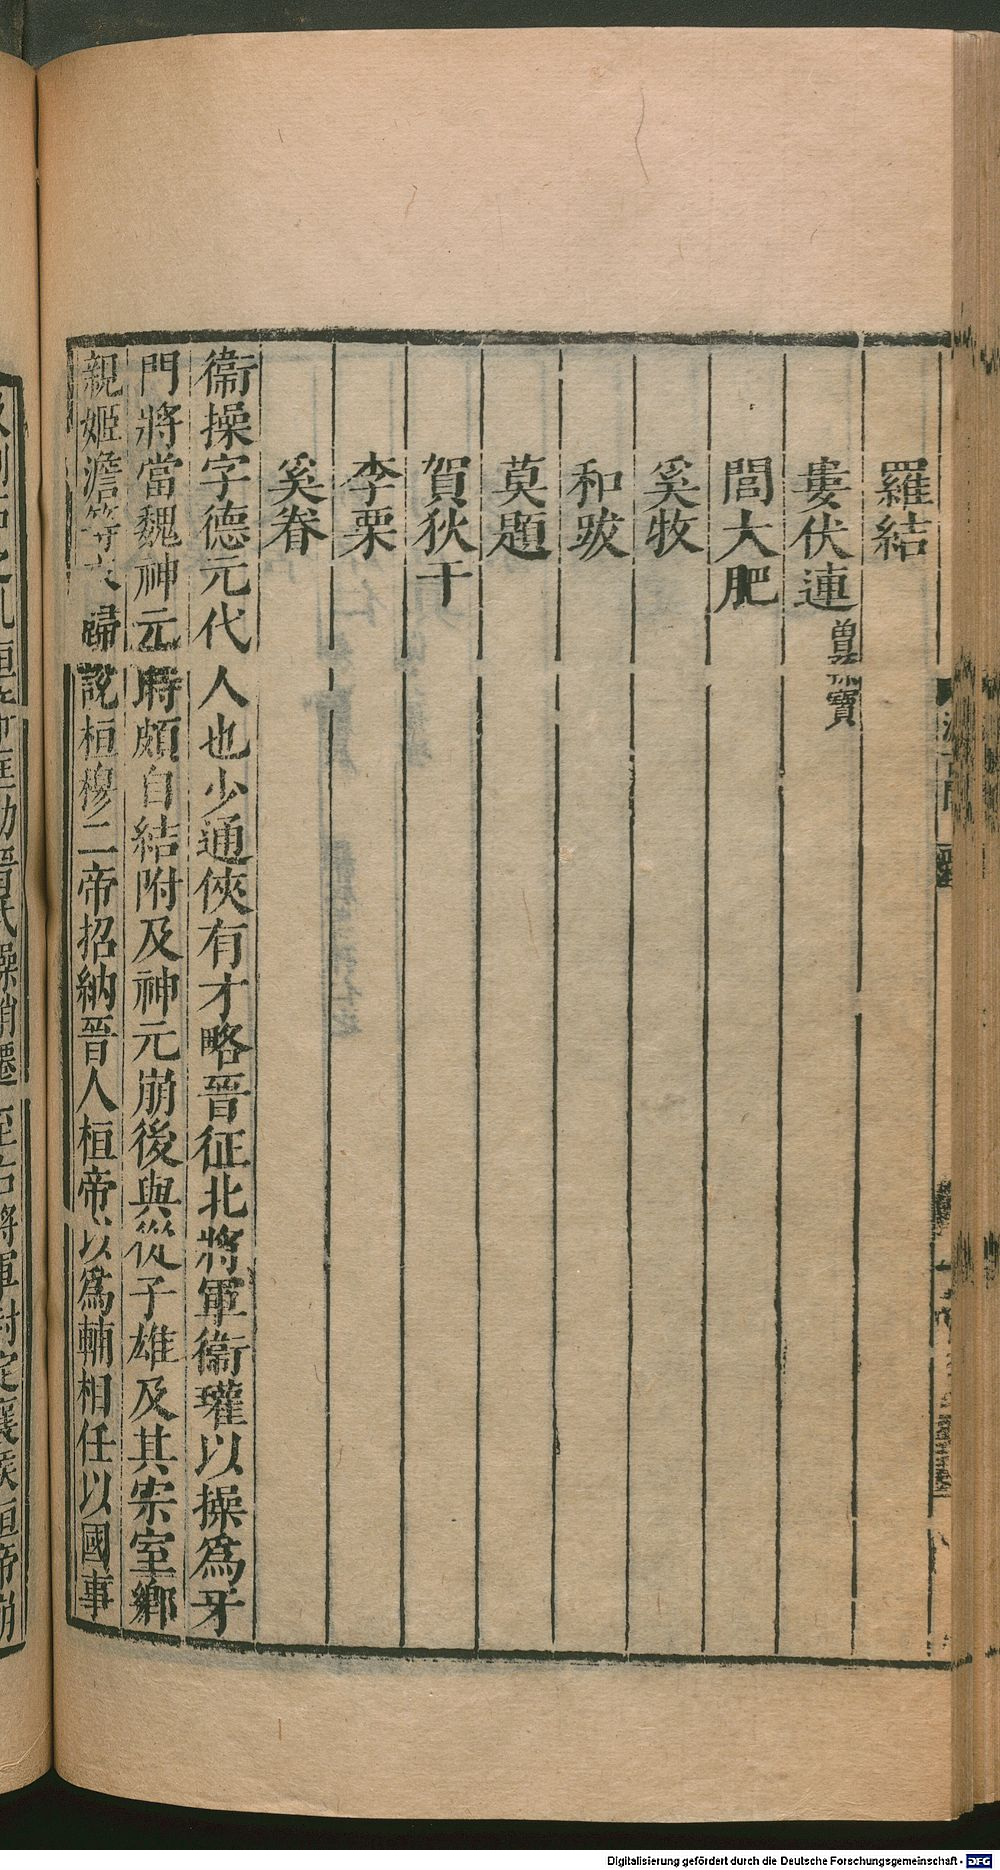 羅結
婁伏連 曽孫寶
閭大肥
奚牧
和跋
莫題
賀狄干
李栗
奚眷
衞操字德元代人也少通俠有才略晉征北將軍衞瓘以操爲牙
門將當魏神元時頗自結附及神元崩後與從子雄及其宗室鄉
親姬澹等來歸說桓穆二帝招納晉人桓帝以爲輔相任以國事
Digitalisierung gefördert durch die Deutsche Forschungsgemeinschaft - DFG